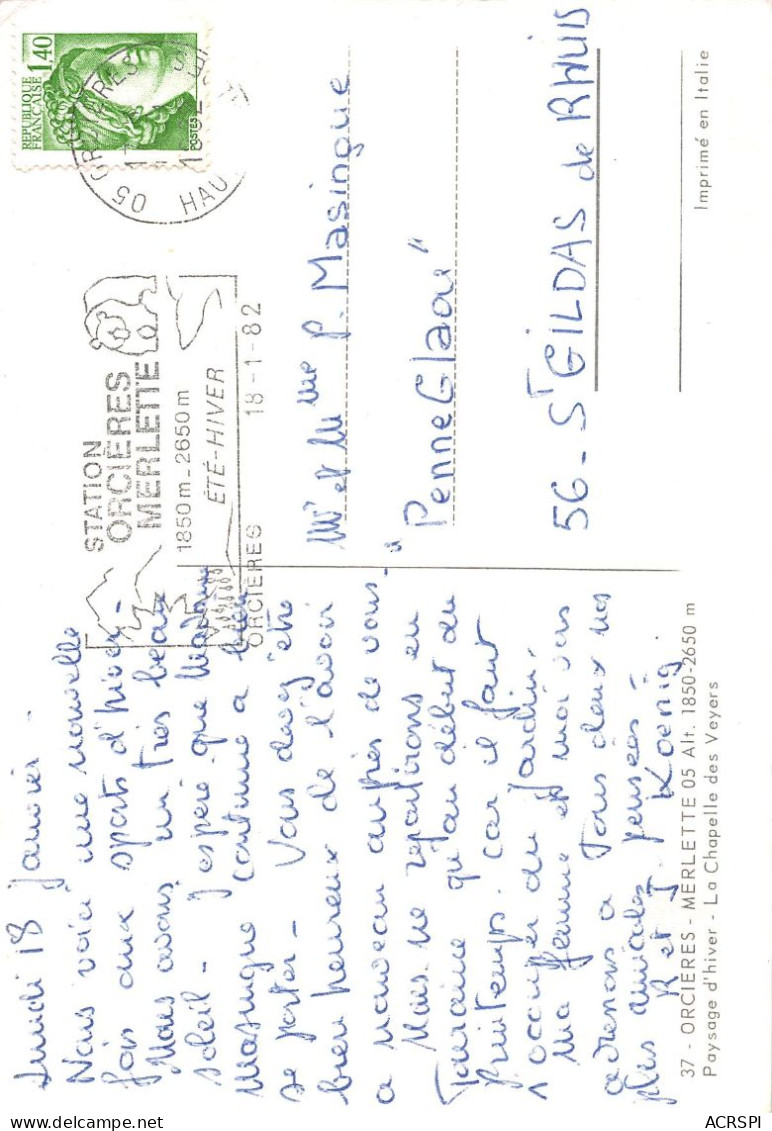 Lundi 18 Janvier -
Nous voici une nouvelle
fois aux sports d'hiver -
Nous avons un très beau
soleil - J'espère que Madame
Masingue continue a bien
se porter - Vous devez être
bien heureux de l'avoir
a nouveau auprès de vous -
Nous ne repartirons en
Touraine qu'au début du
Printemps. car il faut
s'occuper du Jardin.
Ma femme et moi vous
adressons a Tous deux nos
plus amicales pensées -
R et J. Koenig
37 - ORCIERES - MERLETTE 05 Alt. 1850-2650 m
Paysage d'hiver - La Chapelle des Veyers
REPUBLIQUE
FRANÇAISE 1,40
POSTES
05 ORCIERES
HAU
STATION
ORCIÈRES
MERLETTE
1850m - 2650m
ÉTÉ-HIVER
ORCIÈRES 18-1-82
Mr et Mme P. Masingue
"Penne Glaou"
56 - ST GILDAS de RHUIS
Imprimé en Italie
ACRSPI